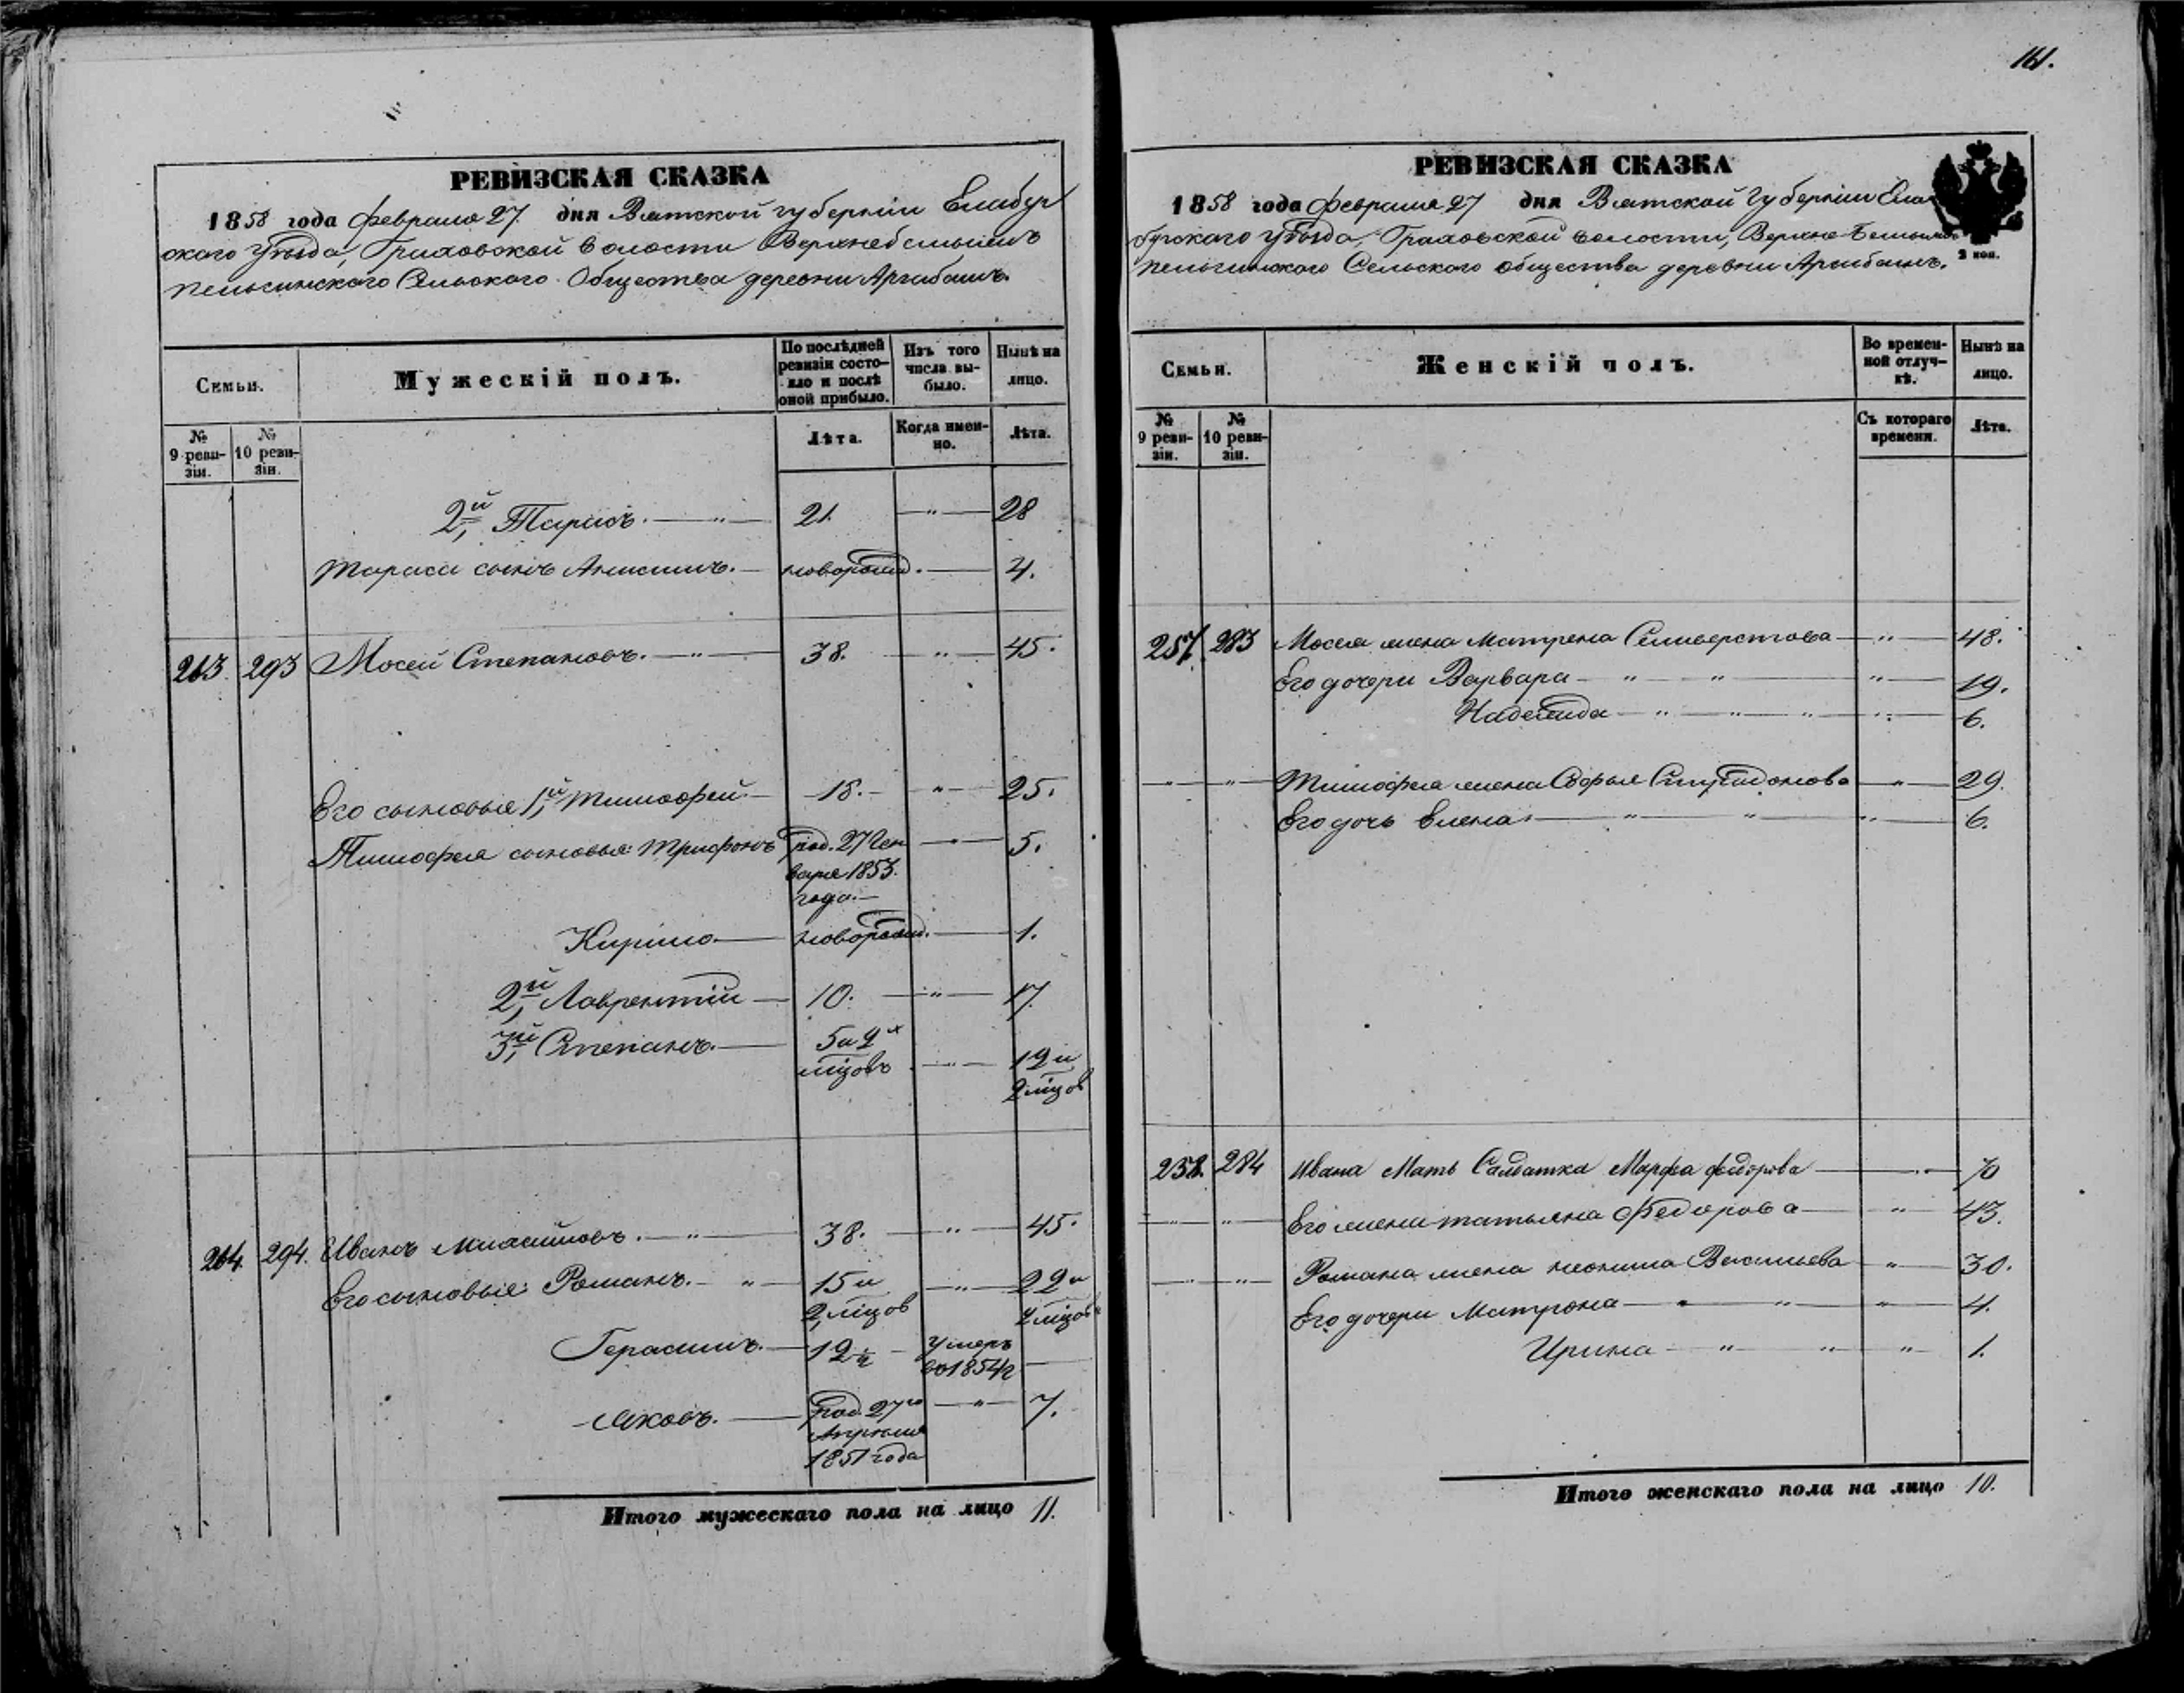 161.
РЕВИЗСКАЯ СКАЗКА
1858 года Февраля 27 дня Вятской губернии Елабуг
скаго Уѣзда, Граховской волости
Сельскаго Общества деревни Аргабашъ.
Семьи.
Мужескій полъ.
По послѣдней ревизіи состояло и послѣ оной прибыло.
Изъ того числа выбыло.
Нынѣ на лицо.
№ 9 ревизіи.
№ 10 ревизіи.
Лѣта.
Когда именно.
Лѣта.
2й, Тарасъ. — 21. — 28
Тараса сынъ Анисимъ. — новорожд. — 4.
263. 293 Мосей Степановъ. — 38. — 45.
Его сыновья 1й, Тимофей — 18. — 25.
Тимофея сыновья: Трифонъ род. 27 Ген — 5.
варя 1853.
года. —
Кирило — новорожд. — 1.
2й, Лаврентій — 10. — 17.
3й, Степанъ. — 5 и 2х — 12 и
мцовъ 2 мцов
264. 294. Иванъ — 38. — 45.
Его сыновья: Романъ. — 15 и — 22 и
2 мцов 2 мцовъ
Герасимъ. — 12 — Умеръ —
во 1854 г
Яковъ. — род. 27го — 7.
Апрѣля
1851 года
Итого мужескаго пола на лицо 11.
РЕВИЗСКАЯ СКАЗКА
1858 года Февраля 27 дня Вятской Губерніи Ела
бугскаго Уѣзда, Граховской волости, Верхне
Сельскаго общества деревни Аргабашъ.
3 коп.
Семьи.
Женскій полъ.
Во временной отлучкѣ.
Нынѣ на лицо.
№ 9 ревизіи.
№ 10 ревизіи.
Съ котораго времени.
Лѣта.
257. 283 Мосея жена Матрена Селиверстова — 48.
Его дочери Варвара — 19.
Надежида — 6.
Тимофея жена Софья Спиридонова — 29.
Его дочь Елена — 6.
258. 284 Ивана Мать Салдатка Марфа Федорова — 70
Его жена Татьяна Федорова — 43.
Романа жена Васильева — 30.
Его дочери Матрона — 4.
Ирина — 1.
Итого женскаго пола на лицо 10.